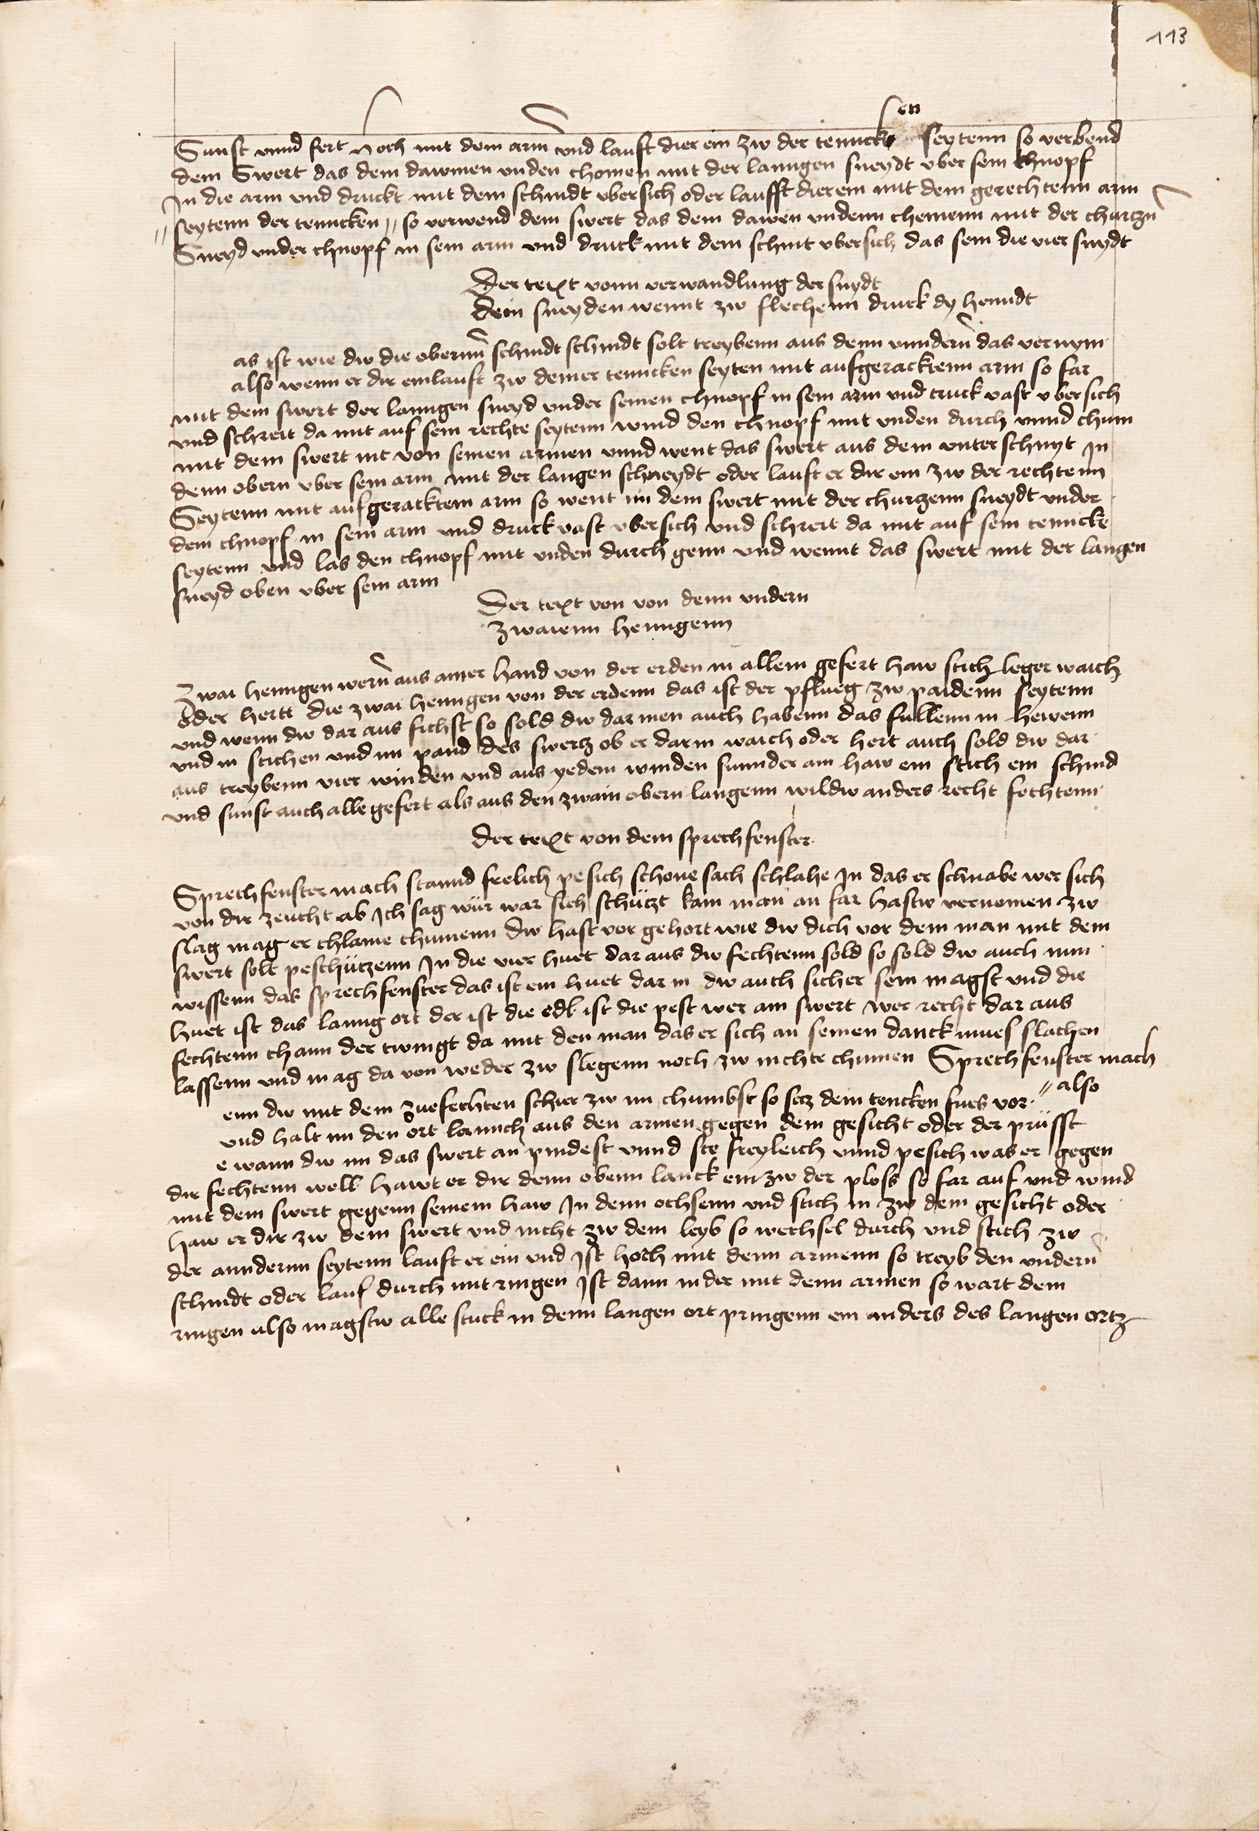 113
Sunst vnnd fert hoch mit dem arm̄ vnd lauft dier ein zw der tenncken seytenn so verbend
dein Swert das dein dawmen vnden chomen mit der lanngen sneydt vber sein chnopf
In die arm vnd druckt mit dem schnidt vbersich oder laufft dier ein mit dem gerechtenn arm
// seytenn der tenncken // so verwend dein swert das dein dawen vndenn chemenn mit der churczn̄
Sneyd vnder chnopf in sein arm vnd druck mit dem schnit vbersich das sein die vier snydt
Der text vonn verwandlung der snydt
Dein sneyden wennt zw flechenn druck dy henndt
as ist wie dw die obernn̄ schnidt schnidt solt treybenn aus denn vnndern̄ das vernym
also wenn er dir einlauft zw deiner tenncken seyten mit aufgeracktenn arm so far
mit dem swert der lanngen sneyd vnder seinen chnopf in sein arm vnd truck vast vbersich
vnd schreit da mit auf sein rechte seytenn wind den chnopf mit vnden durch vnnd chum
mit dem swert nit von seinen armen vnnd went das swert aus dem vnter schnyt In
denn obern vber sein arm mit der langen schneydt oder lauft er dir ein zw der rechtenn
Seytenn mit aufgeracktem arm so went im dein swert mit der churzenn sneydt vnder
dem chnopf in sein arm vnd druck vast vbersich vnd schreit da mit auf sein tenncke
seytenn vnd las den chnopf mit vnden durch genn vnd wennt das swert mit der langen
sneyd oben vber sein arm
Der text von von denn vndern
zwaienn henngenn
Zwai henngen wern̄ aus ainer hand von der erden in allem gefert haw stich leger waich
oder hertt die zwai henngen von der erdenn das ist der pflueg zw paidenn seytenn
vnd wenn dw dar aus fichst so sold dw dar inen auch habenn das fullenn in hewenn
vnd in stichen vnd im pand des swertz ob er darin waich oder hert auch sold dw dar
aus treybenn vier winden vnd aus yedem winden sunnder ain haw ein stich ein schnid
vnd sunst auch alle gefert als aus den zwain obern langenn wildw anders recht fechtenn
Der text von dem sprechfenster
Sprechfenster mach stannd frelich pesich schone sach schlahe In das er schnabe wer sich
von dir zeucht ab Ich sag wür war sich schützt kain man an far hastw vernomen zw
slag mag er chlaine chumenn dw hast vor gehort wie dw dich vor dem man mit dem
swert solt peschützenn In die vier huet dar aus dw fechtenn sold so sold dw auch nun
wissenn das sprechfenster das ist ein huet dar in dw auch sicher sein magst vnd die
huet ist das lanng ort der ist die edl ist die pest wer am swert wer recht dar aus
fechtenn chann der twingt da mit den man das er sich an seinen danck mues slachen
lassenn vnd mag da von weder zw slegenn noch zw nichte chumen Sprechfenster mach
// also
enn dw mit dem zuefechten schier zw im chumbst so secz dein tencken fues vor
vnd halt im den ort lannch aus den armen gegen dem gesicht oder der prüsst
e wann dw im das swert an pindest vnnd ste freyleich vnnd pesich was er gegen
dir fechtenn well hawt er dir denn obenn lanck ein zw der ploss so far auf vnd wind
mit dem swert gegenn seinem haw In denn ochsenn vnd stich in zw dem gesicht oder
haw er dir zw dem swert vnd nicht zw dem leyb so wechsel durch vnd stich zw
der anndernn seytenn lauft er ein vnd Ist hoch mit denn armenn so treyb den vndern̄
schnidt oder lauf durch mit ringen Ist dann nider mit denn armen so wart dein
ringen also magstw alle stuck in denn langen ort pringenn ein anders des langen ortz